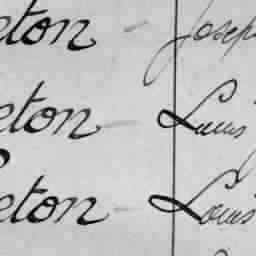 eton - Joseph
eton - Louis
eton - Louis